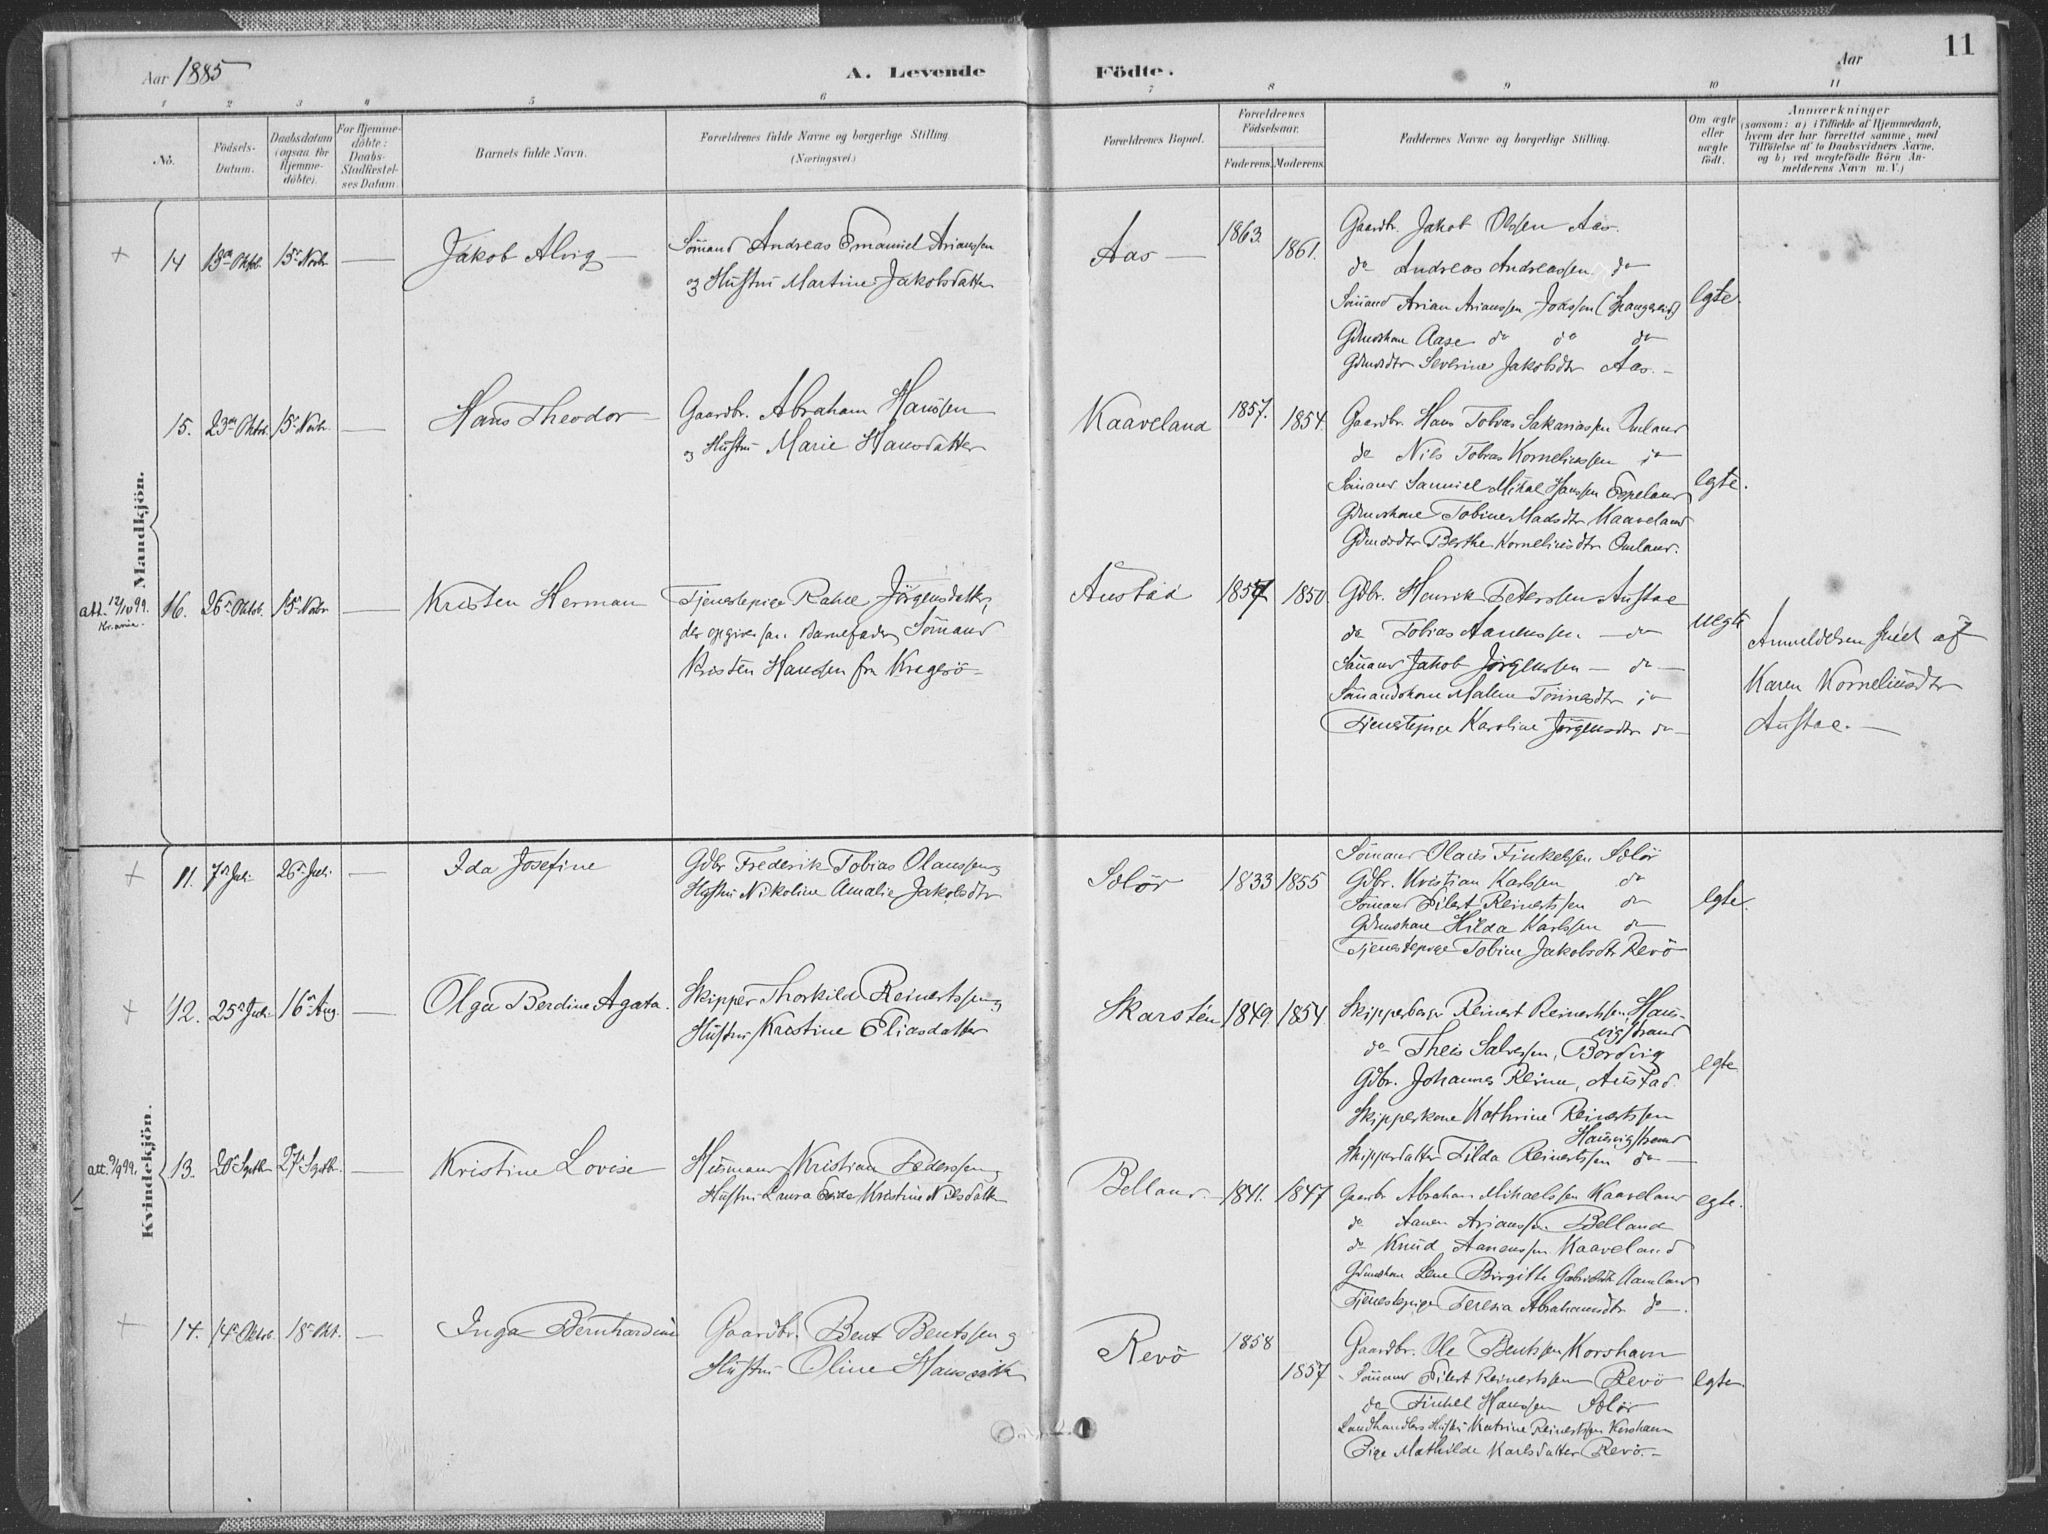 11
Aar 1885
A. Levende
Födte.
Aar
1 2 3 4 5 6 7 8 9 10 11
No.
Födsels-Datum.
Daabsdatum (ogsaa for Hjemmedöbte).
For Hjemmedöbte: Daabs-Stadfæstelses Datum
Barnets fulde Navn.
Forældrenes fulde Navne og borgerlige Stilling. (Næringsvei.)
Forældrenes Bopæl.
Forældrenes Födselsaar.
Faderens. Moderens.
Faddernes Navne og borgerlige Stilling.
Om ægte eller uægte födt.
Anmærkninger (saasom: a) i Tilfælde af Hjemmedaab, hvem der har forrettet samme, med Tilföielse af to Daabsvidners Navne, og b) ved uægtefödte Börn Anmelderens Navn m. V.)
Mandkjön.
+ 14 13de Oktob. 15de Novbr. — Jakob Alvig —
Sömand Andreas Emanuel Arianssen
og Hustru Martine Jakobsdatter
Aas — 1863. 1861.
Gaardbr. Jakob Olssen Aas.
do Andreas Andreassen do
Sömand Arian Arianssen Joassen (Spangereid)
Gdmdskone Aase do do do
Gdmdsdtr Severine Jakobsdtr Aas. —
egte.
15. 23de Oktob. 15de Novbr. — Hans Theodor
Gaardbr. Abraham Hanssen
og Hustru Marie Hansdatter
Kaaveland 1857. 1854.
Gaardbr. Hans Tobias Sakariassen Omland
do Nils Tobias Korneliussen do
Sömand Samuel Mikal Hanssen Espeland
Gdmdskone Tobine Madsdtr Kaaveland
Gdmdsdtr Berthe Korneliusdtr Omland.
egte.
att. 12/10 99. Kr.ania. 16. 26de Oktob. 15de Novbr. — Kristen Herman
Tjenestepige Rakel Jörgensdatter,
der opgiver som Barnefader Sömand
Kristen Hanssen fra Kragerö —
Austad 1857 1850
Gdbr. Henrik Peterssen Austad
do Tobias Aanenssen — do
Sömand Jakob Jörgenssen — do —
Sömandskone Malene Tönnesdtr do
Tjenestepige Karoline Jörgensdtr do —
uegte
Anmeldelsen skeet af
Karen Korneliusdtr
Austad. —
Kvindekjön.
+ 11. 7de Juli 26de Juli. — Ida Josefine
Gdbr Frederik Tobias Olaussen og
Hustru Nikoline Amalie Jakobsdtr
Selör 1833 1855
Sömand Olaus Finkelssen Selör
Gdbr. Kristian Karlssen do
Sömand Eilert Reinertssen do
Gdmdskone Hilda Karlssen do
Tjenestepige Tobine Jakobsdtr Revö
egte.
+ 12. 25de Juli 16de Aug. — Olga Berdine Agata.
Skipper Thorkild Reinertssen og
Hustru Kristine Eliasdatter
Skarstén 1849. 1854
Skipperborger Reinert Reinertssen, Hausvigstrand
do Theis Salvessen, Bordvig
Gdbr. Johannes Reime, Austad.
Skipperkone Kathrine Reinertssen Hausvigstrand
Skipperdatter Tilda Reinertssen do —
egte
att. 9/9 99. 13. 20de Septbr. 27de Septbr. — Kristine Lovise
Husmand Kristian Pederssen og
Hustru Laura Kristine Nilsdatter
Belland. 1841. 1847
Gaardbr Abraham Mikaelssen Kaaveland
do Aanen Arianssen Belland
do Knud Aanenssen Kaaveland
Gdmdskone Lene Birgitte Gabrielsdtr Aamland
Tjenestepige Teresia Abrahamsdtr do —.
egte.
+ 14. 14de Oktob. 18de Okt. — Inga Bernhardine
Gaardbr. Bent Bentssen og
Hustru Oline Hansdatter
Revö 1858 1857
Gaardbr. Ole Bentssen Korshavn
Sömand Eilert Reinertssen Revö
do Finkel Hanssen Selör
Landhandlers Hustru Katrine Reinertssen Korshavn
Pige Mathilde Karlsdatter Revö. —
egte.